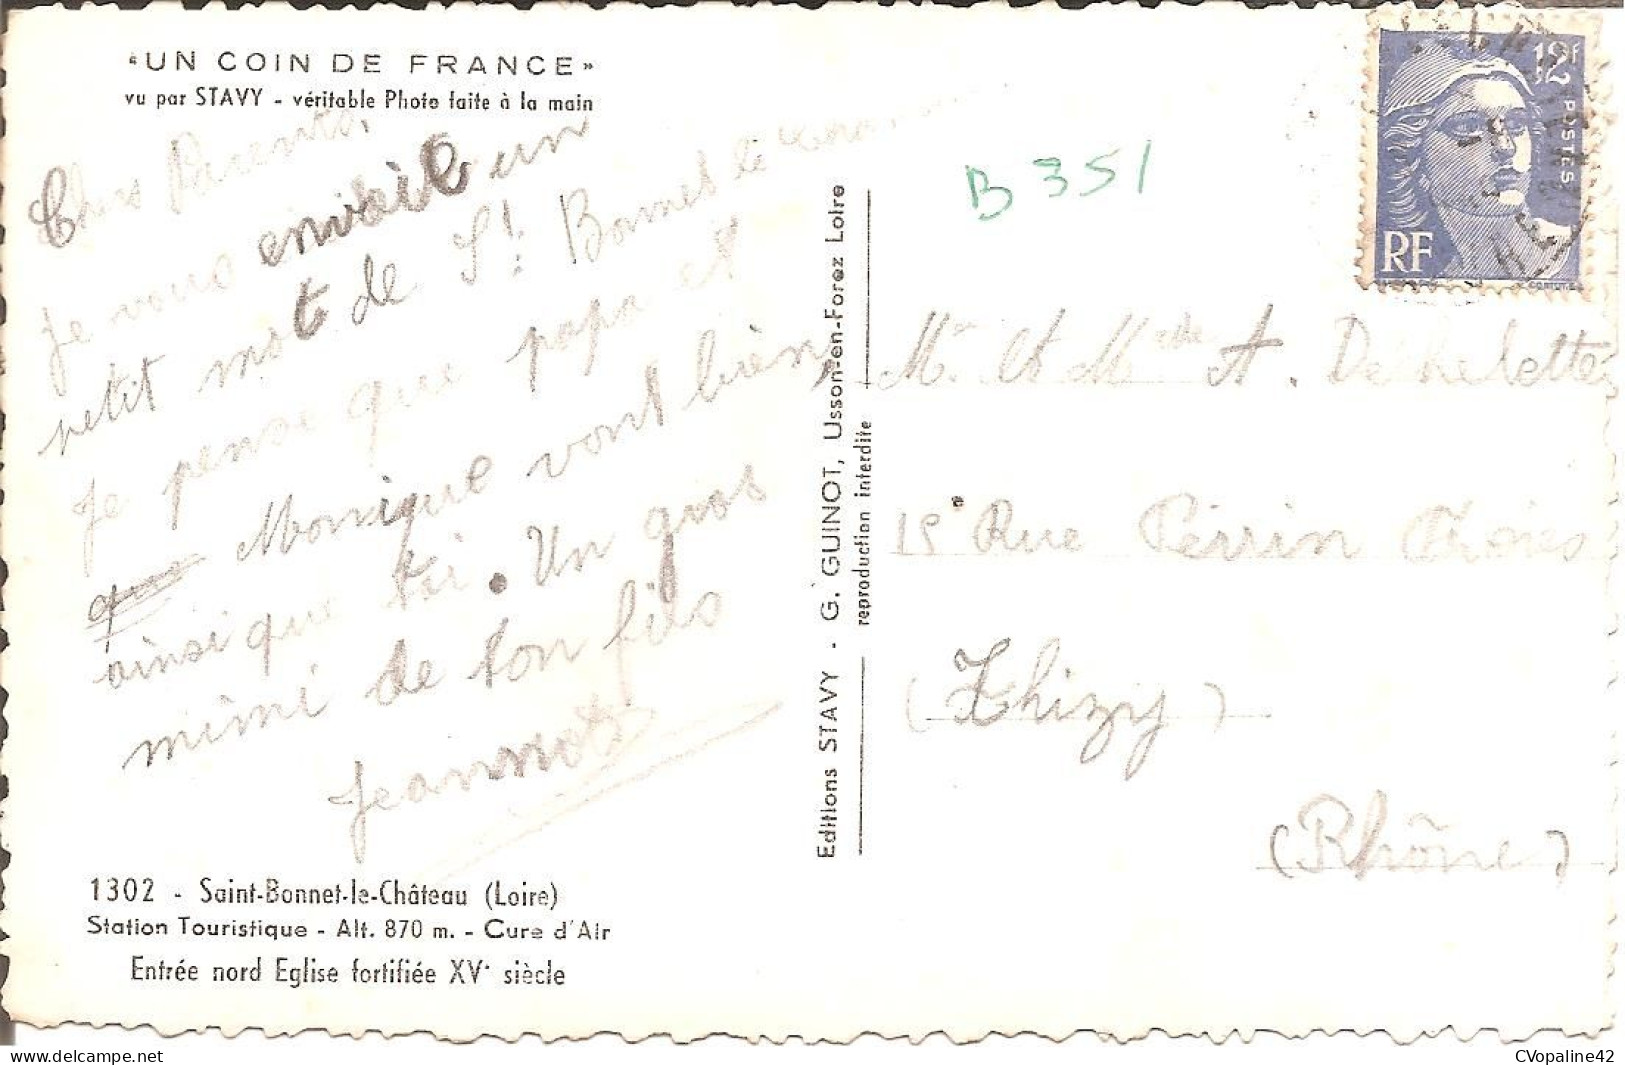 “UN COIN DE FRANCE”
vu par STAVY - véritable Photo faite à la main
Chers Parents,
Je vous envoie un
petit mot de St. Bonnet le
Je pense que papa et
que Monique vont bien,
ainsi que toi. Un gros
mimi de ton fils
Jeannot
1302 - Saint-Bonnet-le-Château (Loire)
Station Touristique - Alt. 870 m. - Cure d'Air
Entrée nord Eglise fortifiée XVe siècle
Editions STAVY - G. GUINOT, Usson-en-Forez Loire
reproduction interdite
B 351
12F
POSTES
RF
Mr. Et Mme A.
Rue Perrin
(Thizy)
(Rhône)
CVopaline42
www.delcampe.net